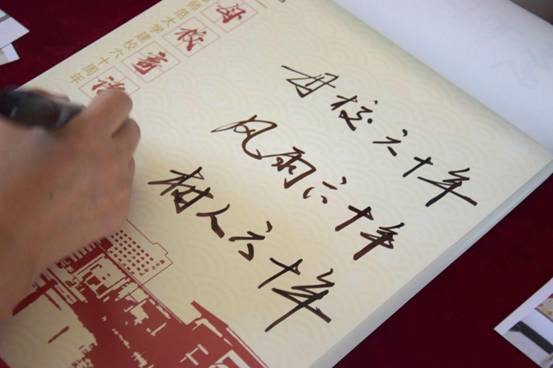 母校寄语
大学建校六十周年
母校六十年
风雨六十年
树人六十年